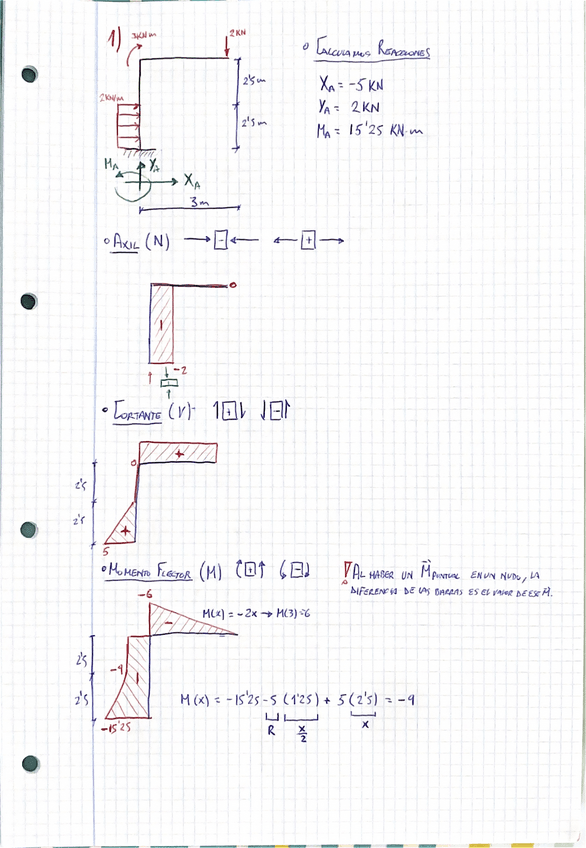 1)
3KNm
2KN
2KN/m
2'5m
2'5m
MA
YA
XA
3m
° CALCULAMOS REACCIONES
XA = -5KN
YA = 2KN
MA = 15'25 KN·m
° AXIL (N) → - ← ← + →
0
-2
° CORTANTE (V) + -
0
+
2'5
2'5
+
5
° MOMENTO FLECTOR (M) + -
! AL HABER UN M PUNTUAL EN UN NUDO, LA
DIFERENCIA DE LAS BARRAS ES EL VALOR DE ESE M.
-6
M(x) = -2x → M(3)=6
-
2'5
-9
2'5
-15'25
M(x) = -15'25 - 5 (1'25) + 5(2'5) = -9
R x/2 x